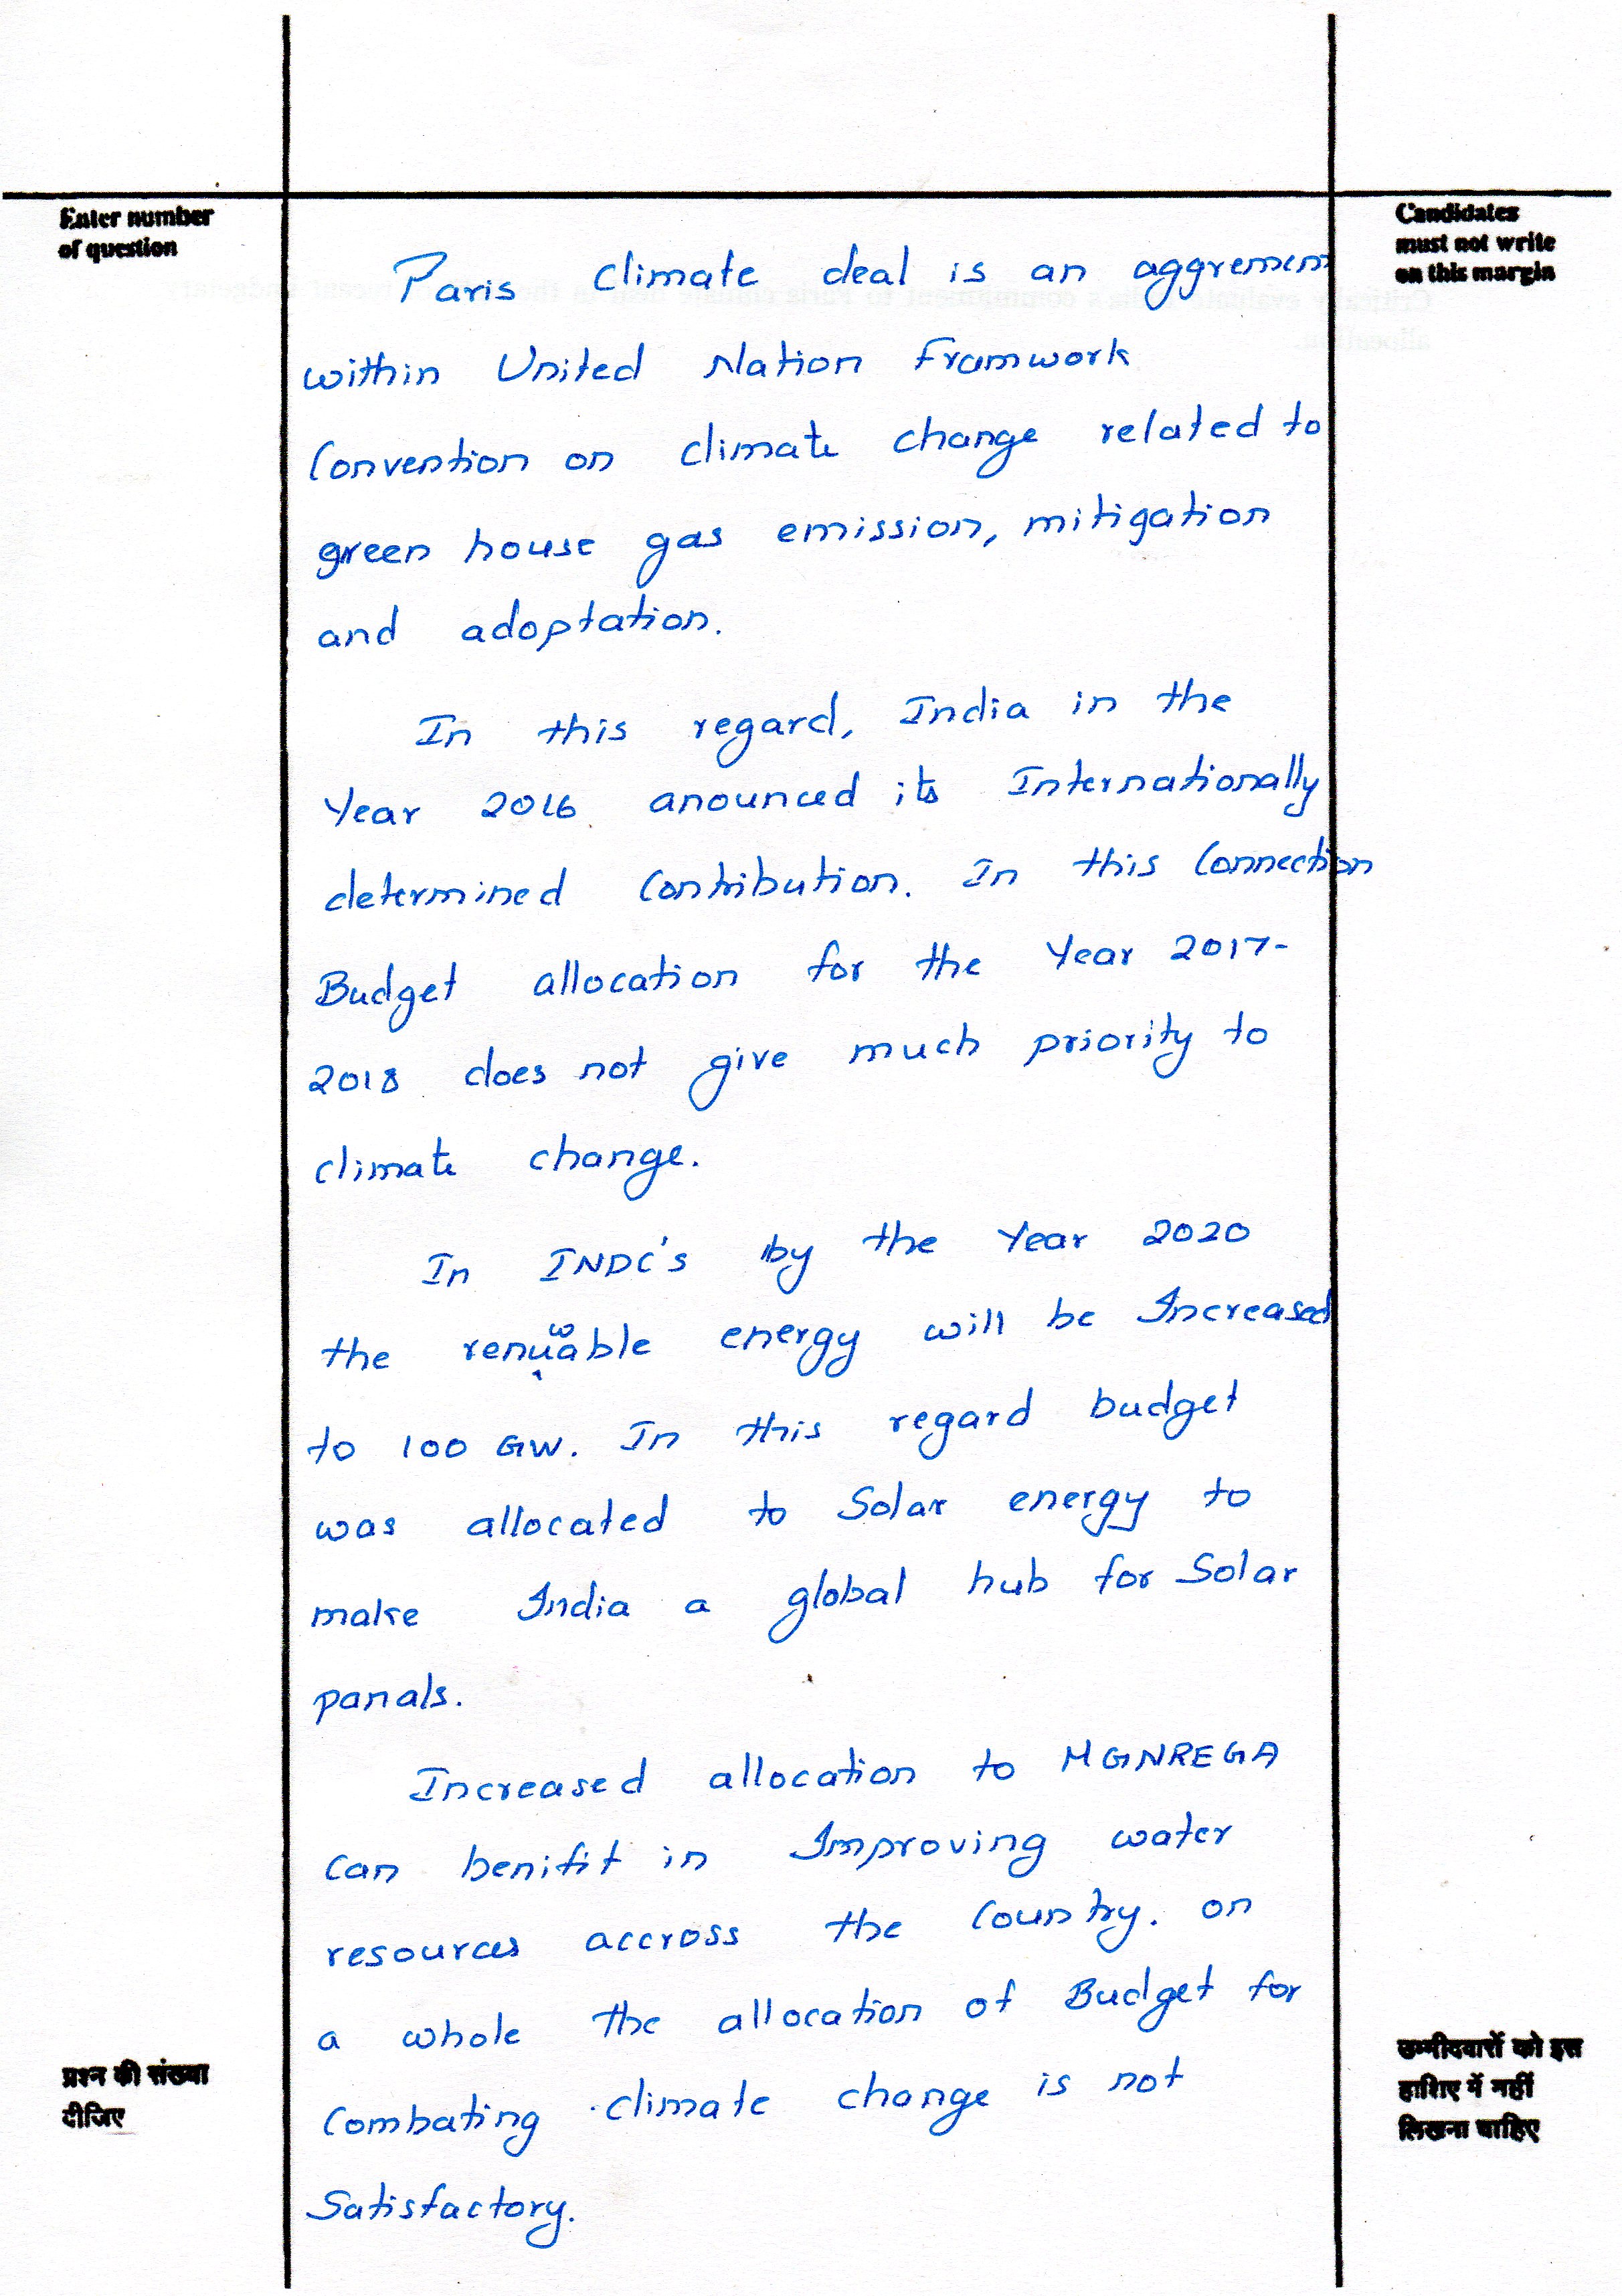 Enter number
of question
Candidates
must not write
on this margin
Paris climate deal is an aggrement
within United Nation Framwork
Convention on climate change related to
green house gas emission, mitigation
and adoptation.
In this regard, India in the
Year 2016 anounced its Internationally
determined Contribution. In this Connection
Budget allocation for the Year 2017-
2018 does not give much priority to
climate change.
In INDC's by the Year 2020
the renewable energy will be Increased
to 100 GW. In this regard budget
was allocated to Solar energy to
make India a global hub for Solar
panals.
Increased allocation to MGNREGA
can benifit in Improving water
resources accross the Country. on
a whole the allocation of Budget for
Combating climate change is not
Satisfactory.
प्रश्न की संख्या
दीजिए
उम्मीदवारों को इस
हाशिए में नहीं
लिखना चाहिए